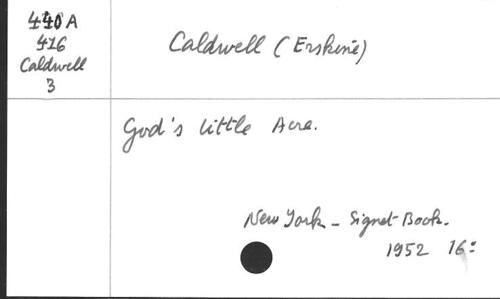 440 A
416
Caldwell
3
Caldwell (Erskine)
God's little Acre.
New York - Signet-Book.
1952 16: